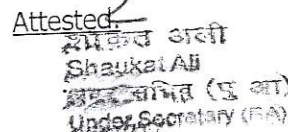 Attested.
अली
Shaukat Ali
सचिव (पु आ)
Under Secretary